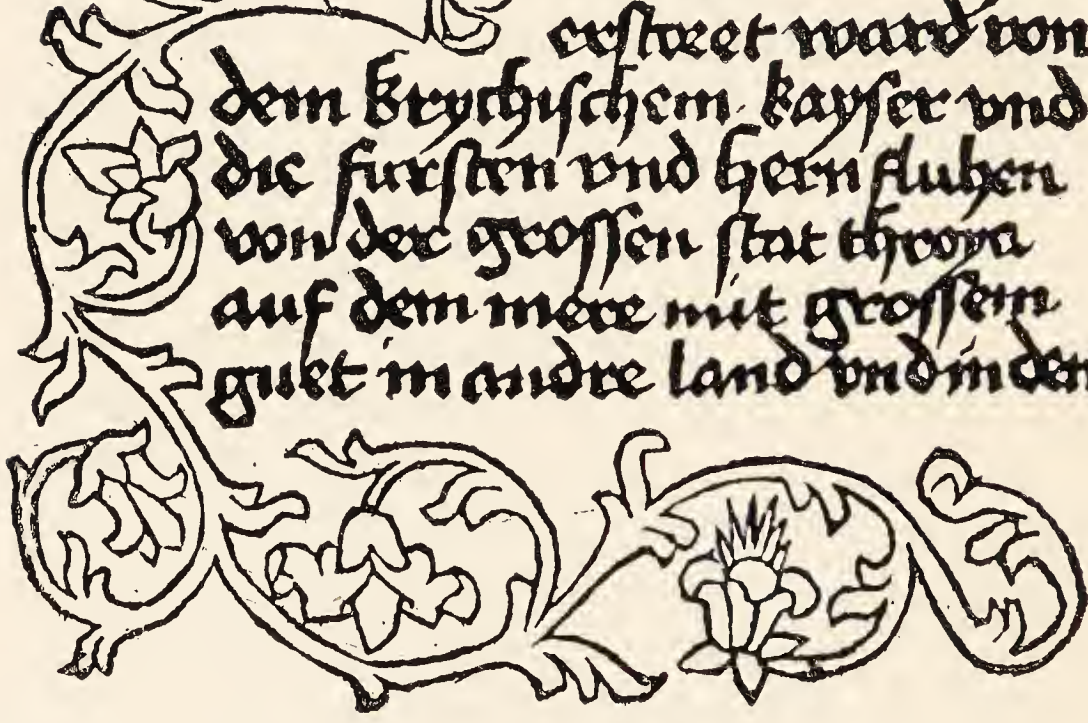 erstoret ward von
dem krychischem kayser vnd
die fursten vnd hern fluhen
von der grossen stat throya
auf dem mere mit grossem
guet in andre land vnd in den